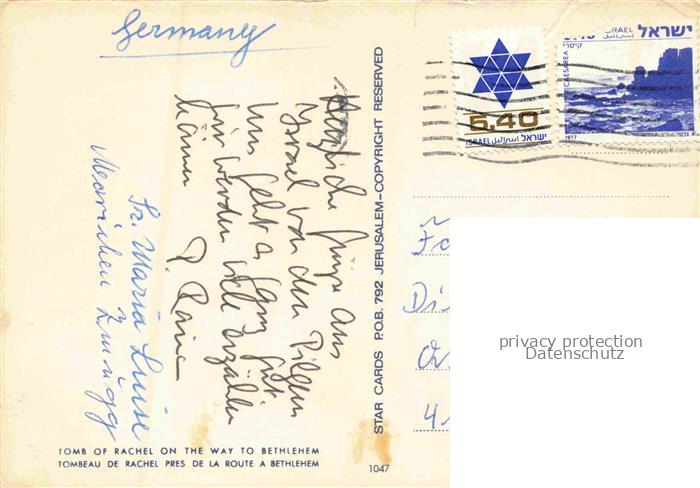 Germany
Herzliche Grüße aus
Israel von den Pilgern
Uns geht es ganz gut.
wir werden viel erzählen
können
P. Rainer
Sr. Maria Luise
TOMB OF RACHEL ON THE WAY TO BETHLEHEM
TOMBEAU DE RACHEL PRES DE LA ROUTE A BETHLEHEM
1047
STAR CARDS P.O.B. 792 JERUSALEM–COPYRIGHT RESERVED
5.40
ISRAEL اسرائيل ישראל
ISRAEL اسرائيل ישראל
CAESAREA קיסרי
1977
privacy protection
Datenschutz